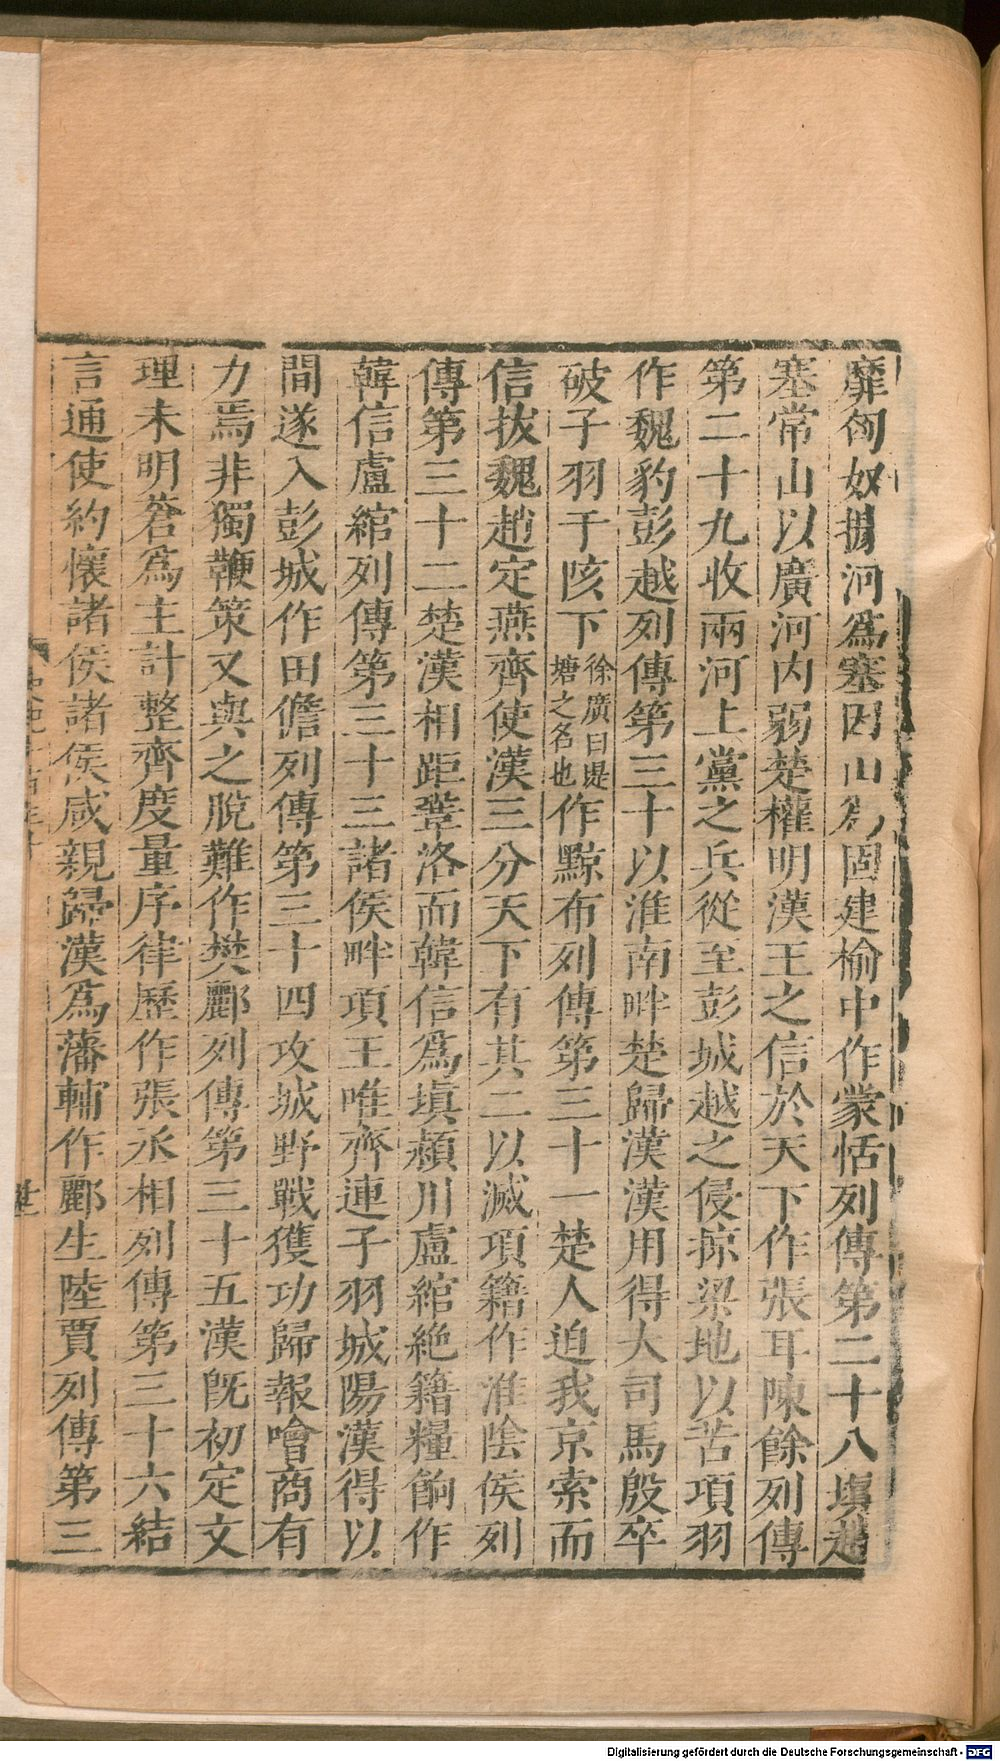 靡匈奴據河爲塞因山爲固建榆中作蒙恬列傳第二十八塡趙
塞常山以廣河内弱楚權明漢王之信於天下作張耳陳餘列傳
第二十九收兩河上黨之兵從至彭城越之侵掠梁地以苦項羽
作魏豹彭越列傳第三十以淮南畔楚歸漢漢用得大司馬殷卒
破子羽于陔下徐廣曰堤塘之名也作黥布列傳第三十一楚人迫我京索而
信拔魏趙定燕齊使漢三分天下有其二以滅項籍作淮陰侯列
傳第三十二楚漢相距鞏洛而韓信爲塡潁川盧綰絶籍糧餉作
韓信盧綰列傳第三十三諸侯畔項王唯齊連子羽城陽漢得以
間遂入彭城作田儋列傳第三十四攻城野戰獲功歸報噲商有
力焉非獨鞭策又與之脫難作樊酈列傳第三十五漢旣初定文
理未明蒼爲主計整齊度量序律歷作張丞相列傳第三十六結
言通使約懷諸侯諸侯咸親歸漢爲藩輔作酈生陸賈列傳第三
Digitalisierung gefördert durch die Deutsche Forschungsgemeinschaft - DFG